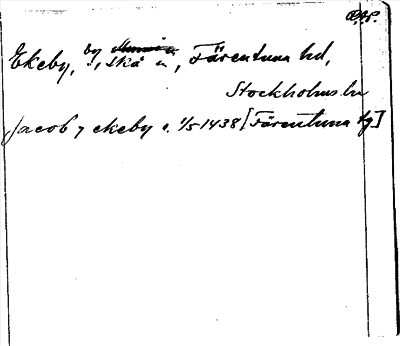 Ekeby, by, Skå sn, Färentuna hd,
Stockholms län
Jacob j ekeby o. 1/5 1438 [Färentuna tg]